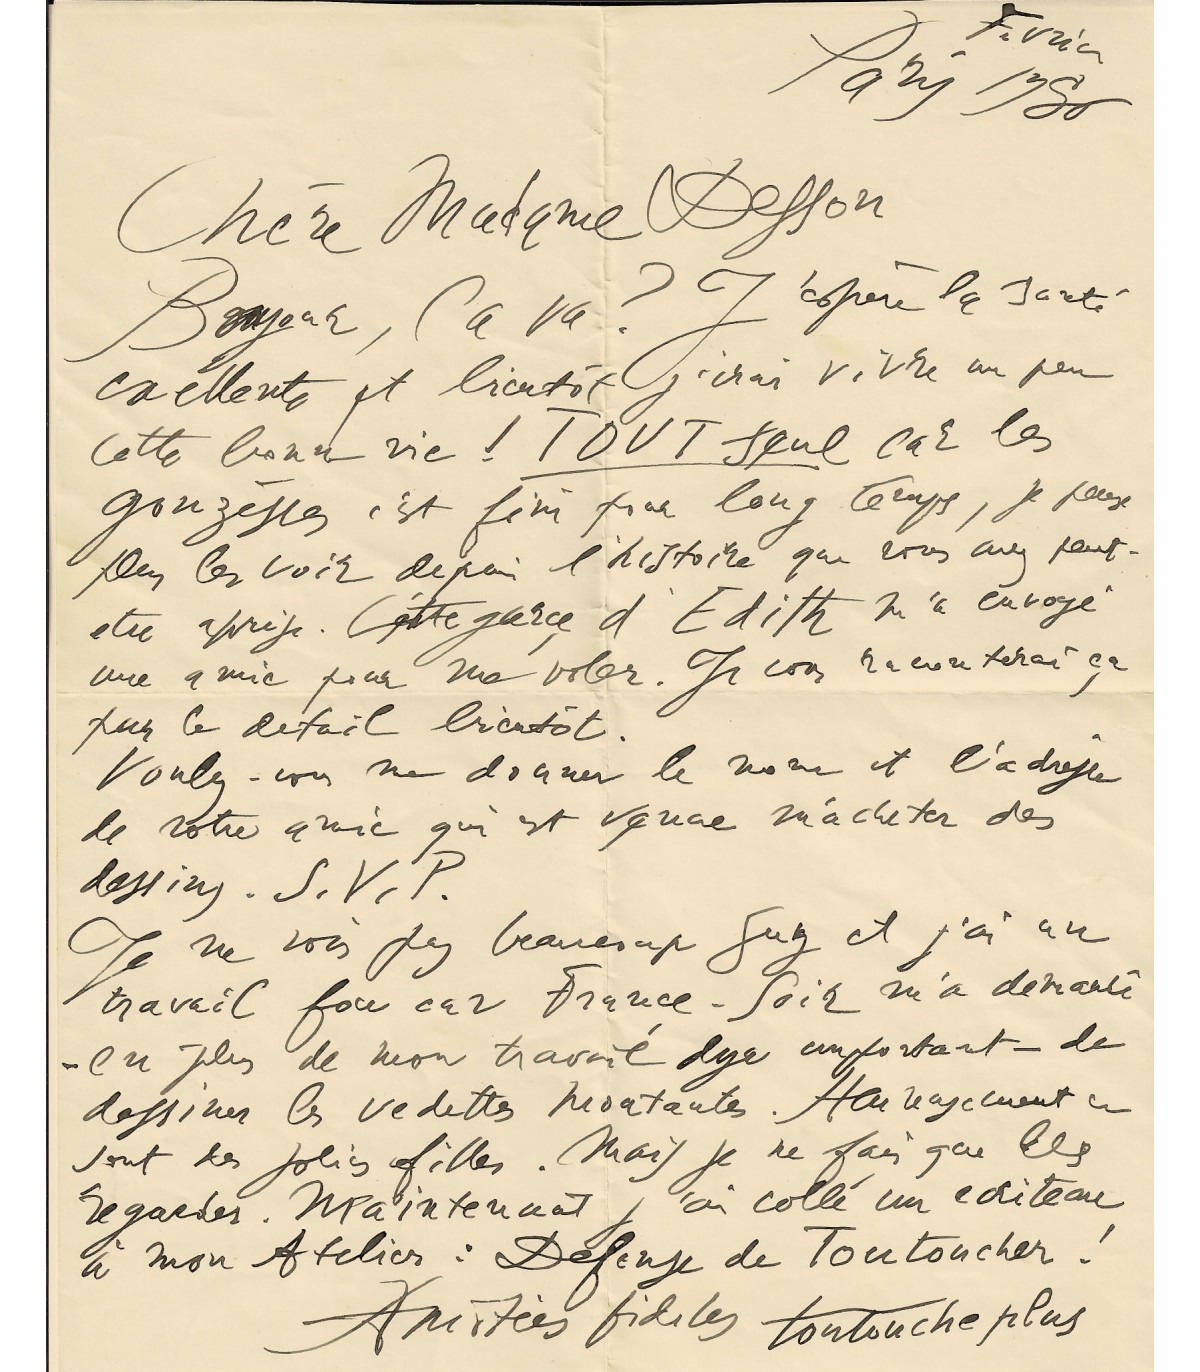 Février
Paris 1980
Chère Madame Desson
Bonjour, Ca va ? J'espère la santé
excellente et bientôt j'irai vivre un peu
cette bonne vie ! TOUT seul car les
gonzesses c'est fini pour long temps, je peux
pas les voir depuis l'histoire que vous avez peut-
etre apprise. Cette garce d'Edith m'a envoyé
une amie pour me voler. Je vous raconterai ça
par le detail bientôt.
Voulez-vous me donner le nom et l'adresse
de votre amie qui est venue m'acheter des
dessins. S.V.P.
Je ne vois pas beaucoup Guy et j'ai un
travail fou car France-Soir m'a demandé
-en plus de mon travail deja important- de
dessiner les vedettes montantes. Heureusement ce
sont des jolies filles. Mais je ne fais que les
regarder. Maintenant j'ai collé un ecriteau
à mon Atelier : Defense de Toutoucher !
Amitiées fideles toutoucheplus